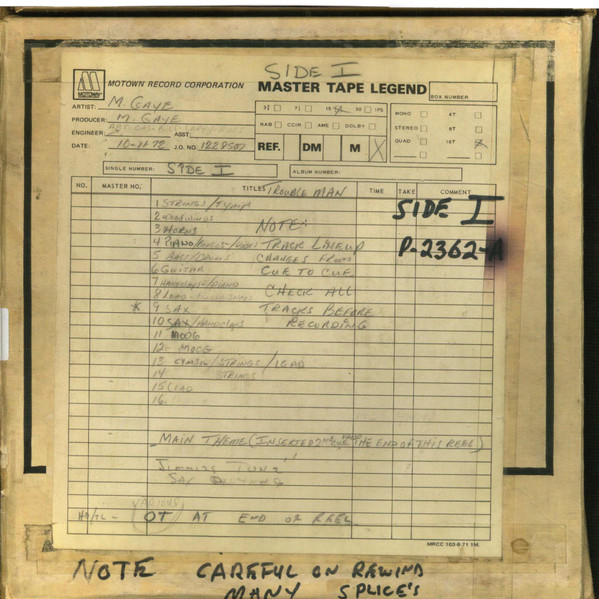 SIDE I
MOTOWN RECORD CORPORATION
MASTER TAPE LEGEND
BOX NUMBER
ARTIST: M. GAYE
PRODUCER: M. GAYE
ENGINEER: ASST:
DATE: 10-11-72 J.O. NO. 1228507
3¾ 7½ 15 30 IPS
NAB CCIR AME DOLBY
REF. DM M X
MONO 4T
STEREO 8T
QUAD 16T
SINGLE NUMBER: SIDE I ALBUM NUMBER:
NO. MASTER NO. TITLES TROUBLE MAN TIME TAKE COMMENT
SIDE I
P-2362-A
1 STRINGS/TYMP
2 WOODWINDS NOTE:
3 HORNS
4 PIANO/ TRACK LINEUP
5 BASS/DRUMS CHANGES FROM
6 GUITAR CUE TO CUE
7 HANDCLAPS/PIANO
8 LEAD CHECK ALL
* 9 SAX TRACKS BEFORE
10 SAX/HANDCLAPS RECORDING
11 MOOG
12 MOOG
13 CYMBAL/STRINGS/LEAD
14 STRINGS
15 LEAD
16.
MAIN THEME (INSERTED THE END OF THIS REEL)
OT AT END OF REEL
MRCC 103-8 71 1M.
NOTE CAREFUL ON REWIND
MANY SPLICE'S